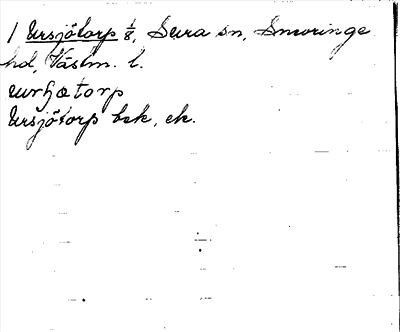 1 Ursjötorp 1/8, Sura sn, Snevringe
hd, Västm. l.
ursjötorp
Ursjötorp bek, ek.